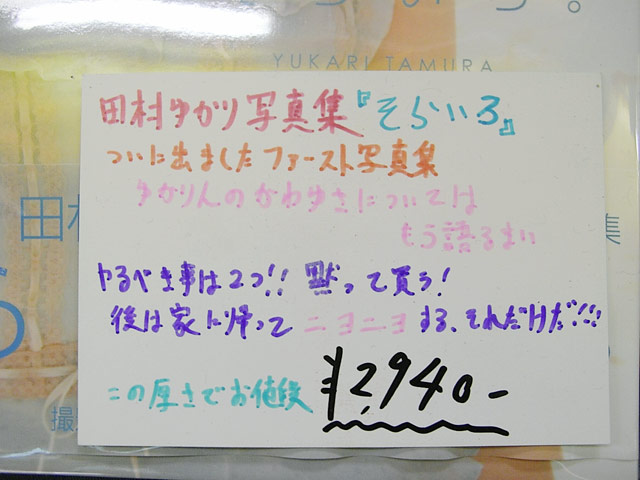 YUKARI TAMURA
田村ゆかり写真集『そらいろ』
ついに出ましたファースト写真集
ゆかりんのかわゆさについては
もう語るまい
やるべき事は2つ!! 黙って買う!
後は家に帰ってニヨニヨする、それだけだ!!!
この厚さでお値段 ¥2,940-
田
集
撮